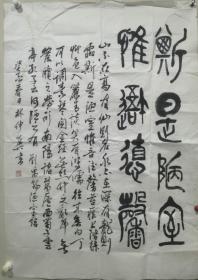 斯是陋室
惟吾德馨
山不在高有仙則名水不在深有龍則
靈斯是陋室惟吾德馨苔痕上階綠
草色入簾青談笑有鴻儒往來無白丁
可以調素琴閱金經無絲竹之亂耳無
案牘之勞形南陽諸葛廬西蜀子雲
亭孔子云何陋之有 劉禹錫陋室銘
春日林仲興書